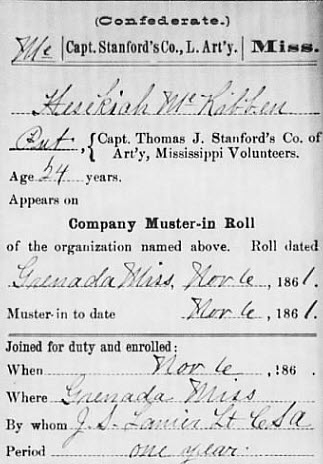 (Confederate.)
Mc | Capt. Stanford's Co., L. Art'y. | Miss.
Hesekiah McKibben
Pvt, { Capt. Thomas J. Stanford's Co. of Art'y, Mississippi Volunteers.
Age 24 years.
Appears on
Company Muster-in Roll
of the organization named above. Roll dated
Grenada Miss, Nov 6, 1861.
Muster-in to date Nov 6, 1861.
Joined for duty and enrolled:
When Nov 6, 186 .
Where Grenada Miss
By whom J. S. Lanier Lt CSA
Period one year.